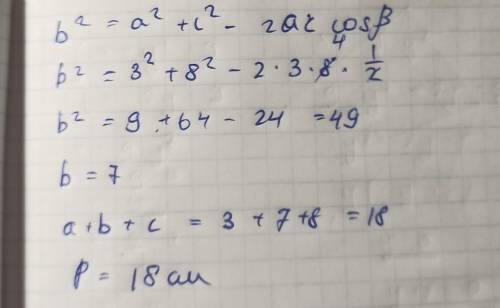 b² = a² + c² - 2ac cosβ
b² = 3² + 8² - 2 · 3 · 8 4 · 1/2
b² = 9 + 64 - 24 = 49
b = 7
a + b + c = 3 + 7 + 8 = 18
P = 18 см